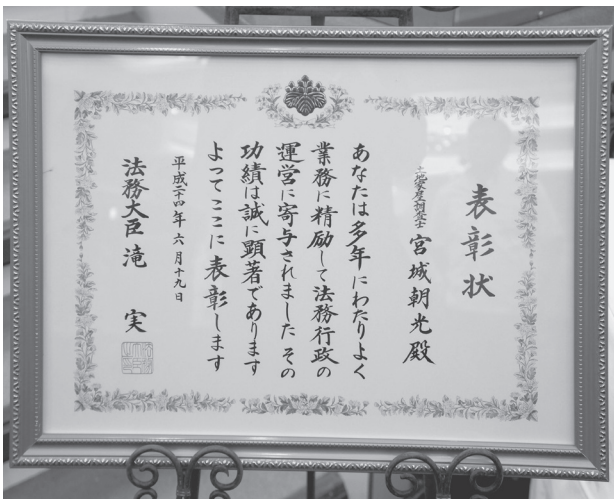 表彰状
土地家屋調査士 宮城朝光殿
あなたは多年にわたりよく
業務に精励して法務行政の
運営に寄与されました その
功績は誠に顕著であります
よってここに表彰します
平成二十四年六月十九日
法務大臣 滝 実